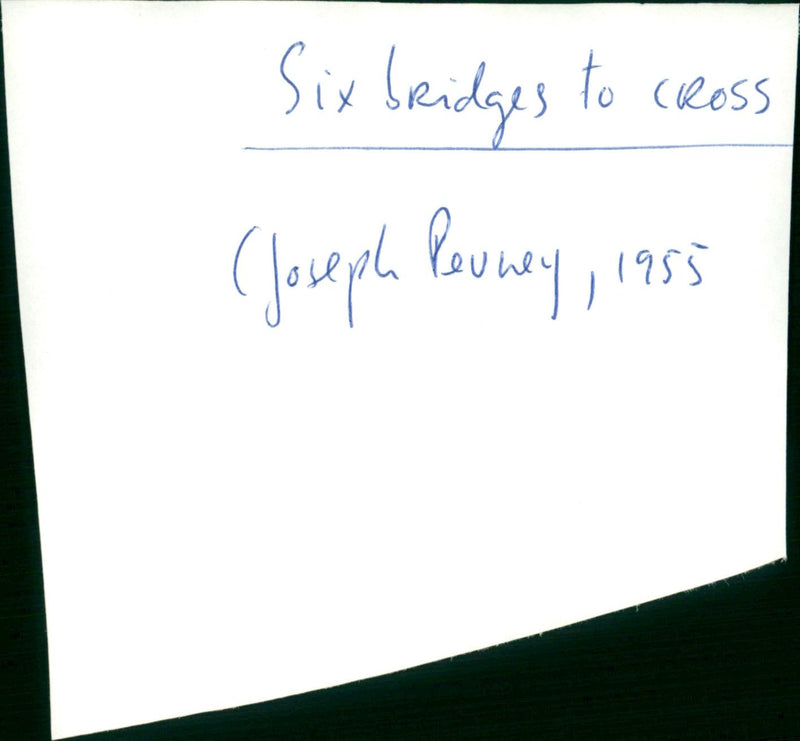 Six bridges to cross
(Joseph Pevney, 1955